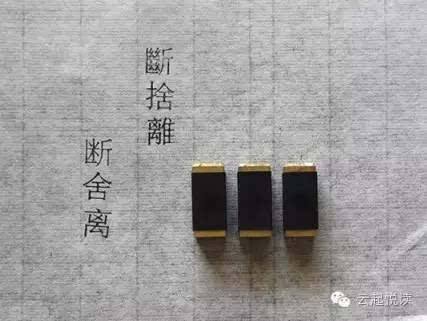 斷捨離
断舍离
云起悦读